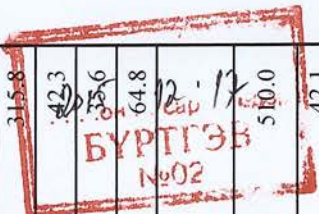 315.8
42.3
75.6
64.8
510.0
42.1
он сар
12 · 17
БҮРТГЭВ
№02